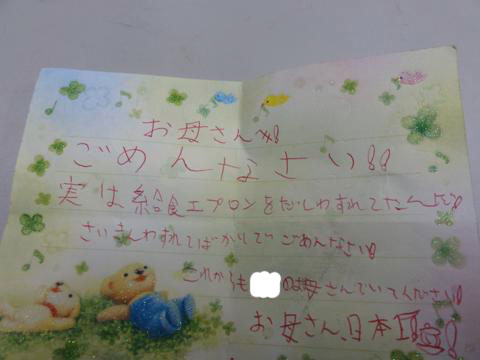 お母さん!!
ごめんなさい!!
実は給食エプロンをだしわすれてたんだ!
さいきんわすれてばかりでごめんなさい!
これからも の母さんでいてください!
お母さん、日本